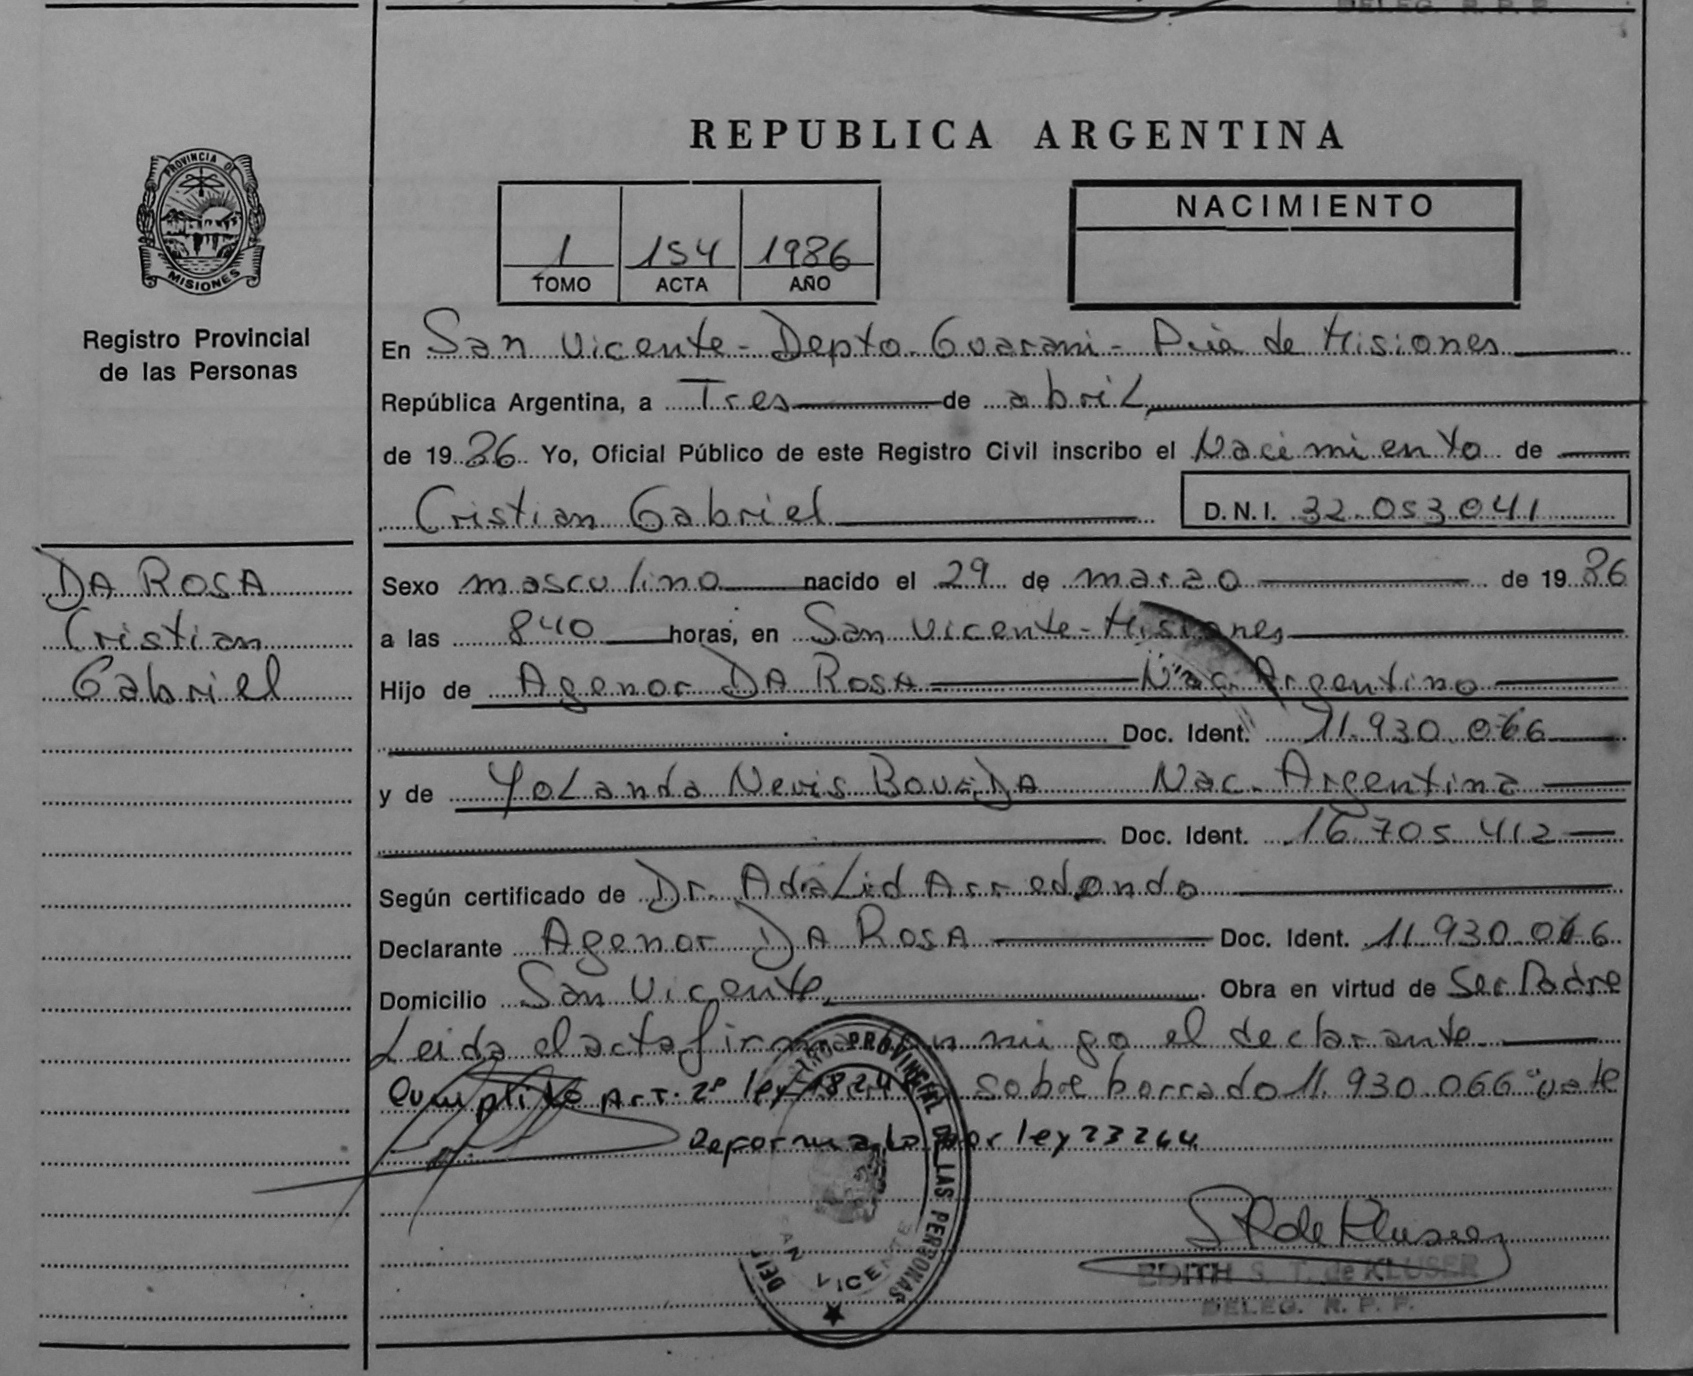 DELEG. R. P. P.
REPUBLICA ARGENTINA
PROVINCIA DE
MISIONES
Registro Provincial
de las Personas
1 154 1986
TOMO ACTA AÑO
NACIMIENTO
En San Vicente - Depto. Guarani - Pcia de Misiones
República Argentina, a Tres de abril
de 1986 Yo, Oficial Público de este Registro Civil inscribo el Nacimiento de
Cristian Gabriel D.N.I. 32.053.041
DA ROSA
Cristian
Gabriel
Sexo masculino nacido el 29 de marzo de 1986
a las 840 horas, en San Vicente - Misiones
Hijo de Agenor DA ROSA Nac. Argentino
Doc. Ident. 11.930.066
y de Yolanda Nevis BOVEDA Nac. Argentina
Doc. Ident. 16.705.412
Según certificado de Dr. Adalid Arredondo
Declarante Agenor DA ROSA Doc. Ident. 11.930.066
Domicilio San Vicente Obra en virtud de Ser Padre
Leida el acta firma con migo el declarante
Cumplido Art. 2º ley sobre borrado 11.930.066 "vale
Reformada por ley 23264
REGISTRO PROVINCIAL DE LAS PERSONAS
SAN VICENTE
EDITH S. T. de KLUSER
DELEG. R. P. P.